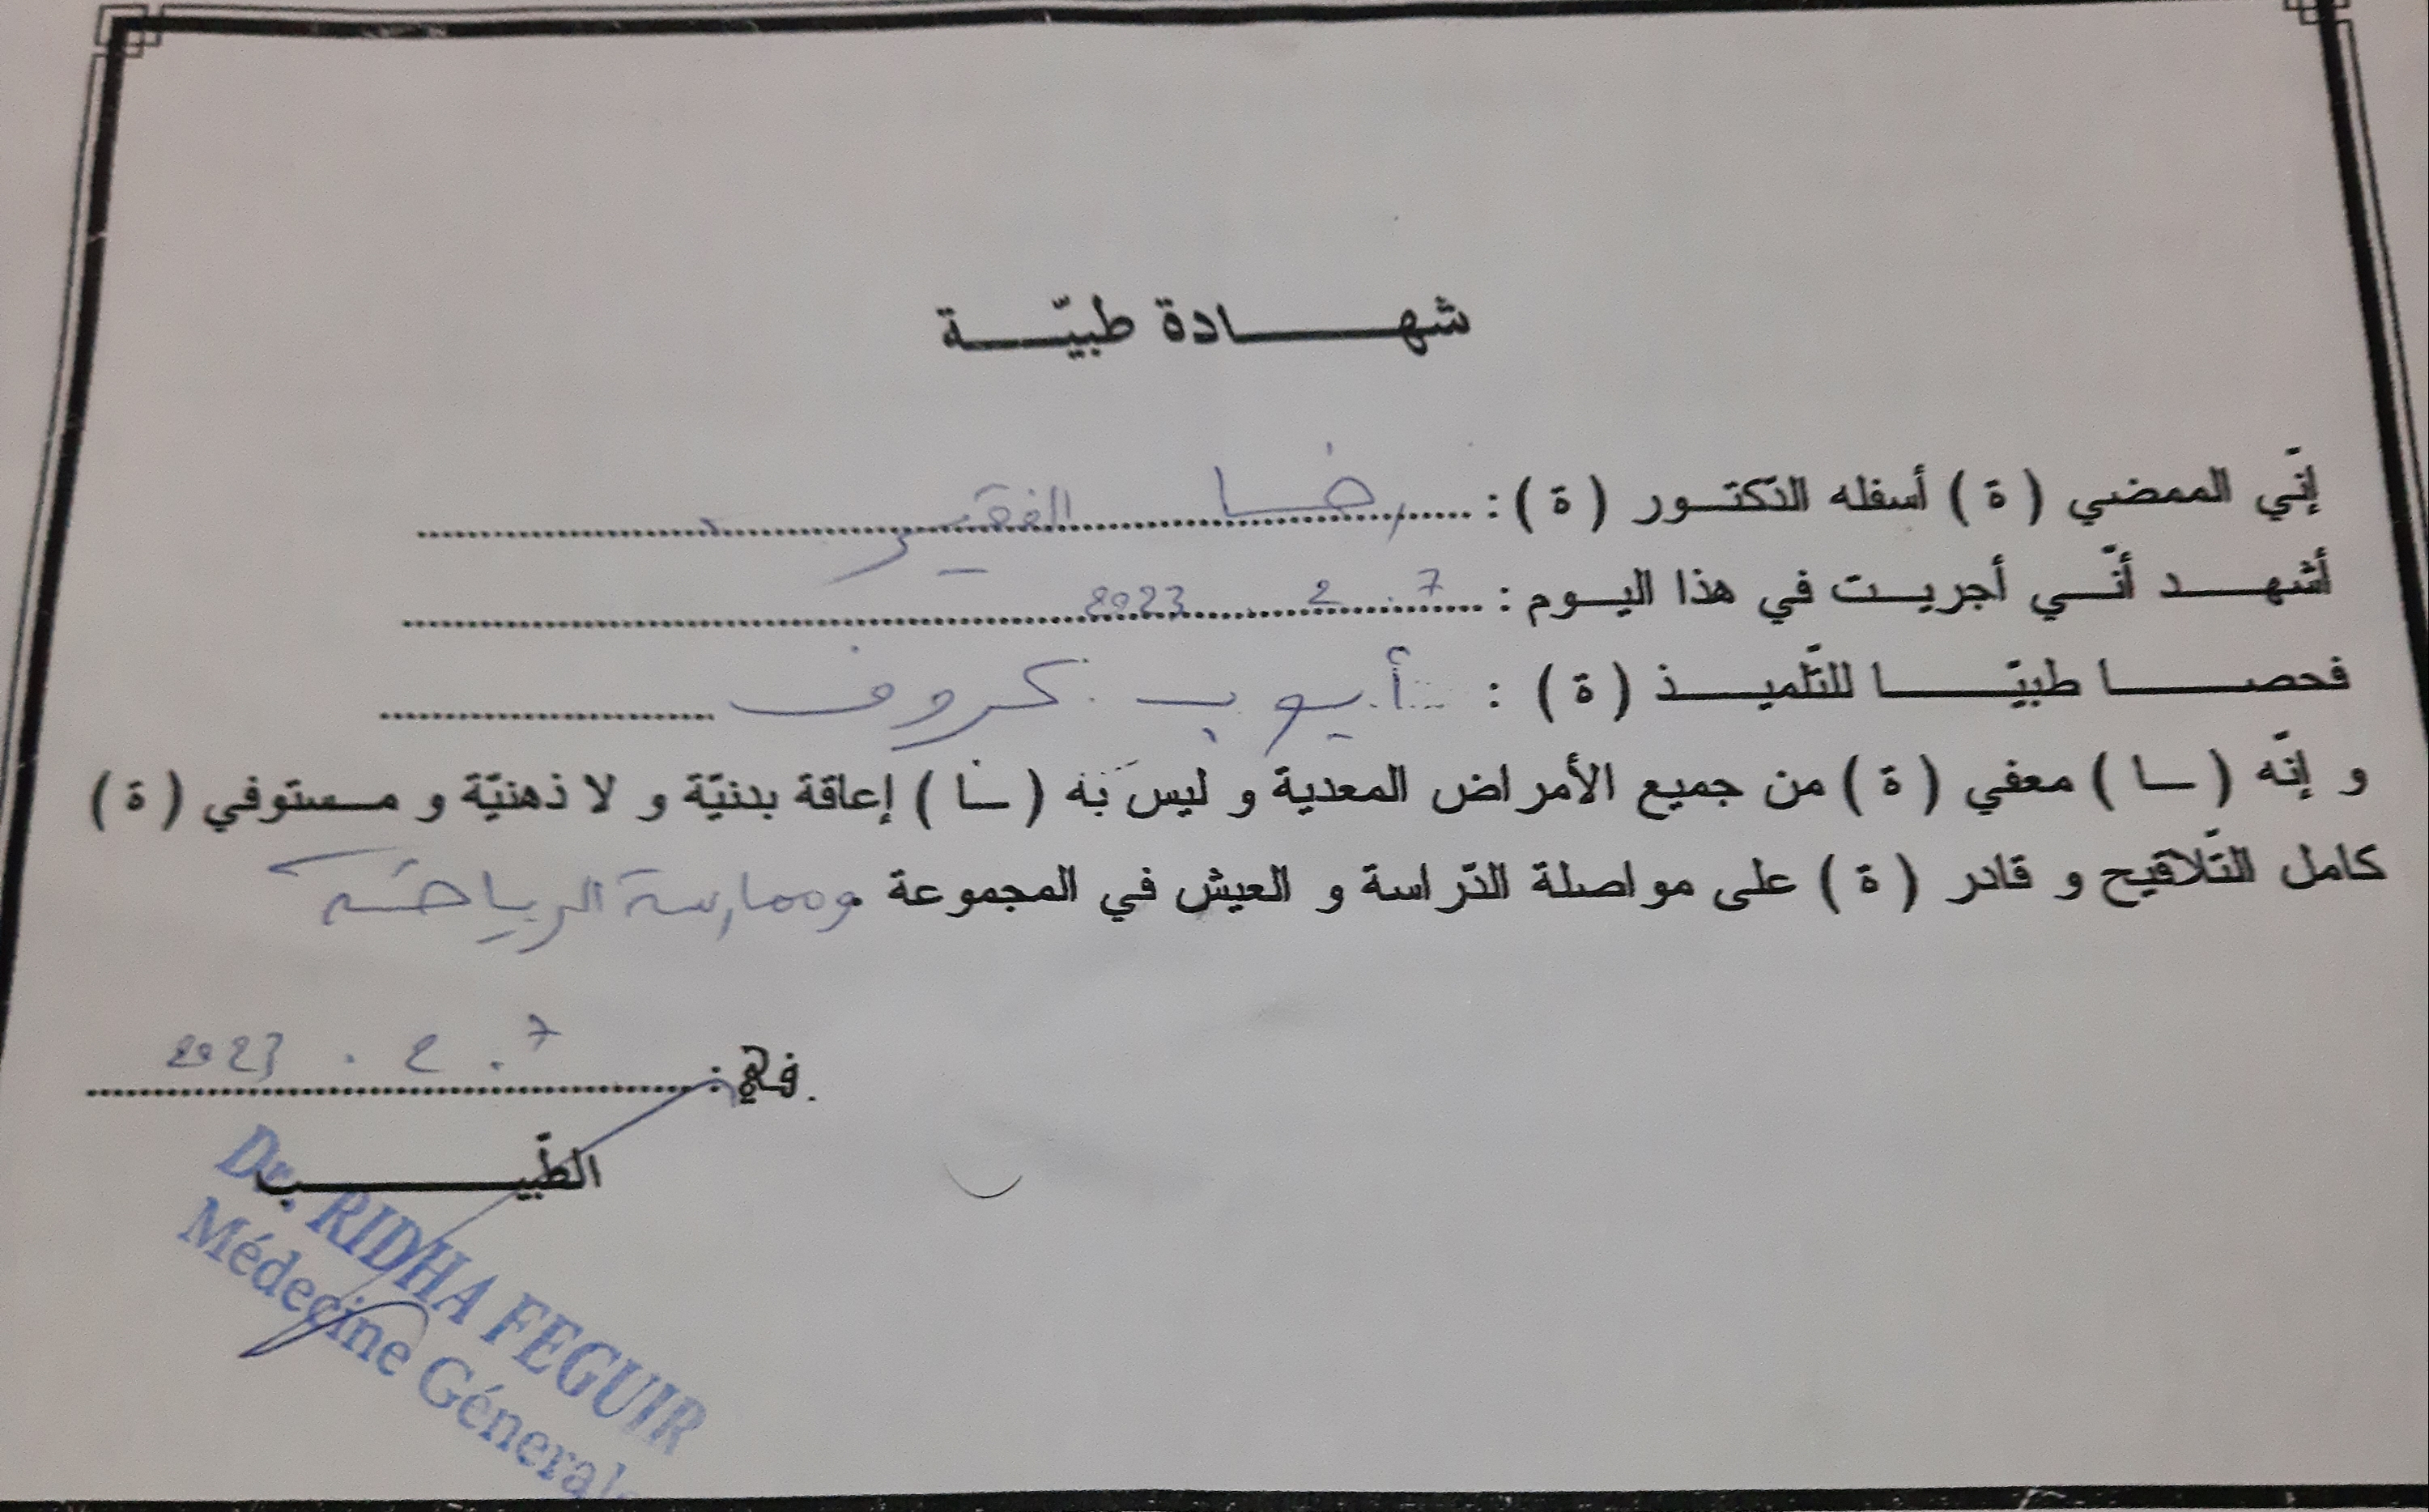 شهادة طبيّة
إنّي الممضي ( ة ) أسفله الدّكتور ( ة ) : رضا الفقير
أشهد أنّي أجريت في هذا اليوم : 7 . 2 . 2023
فحصا طبيّا للتّلميذ ( ة ) : أيوب كروف
و إنّه ( ـا ) معفي ( ة ) من جميع الأمراض المعدية و ليس به ( ـا ) إعاقة بدنيّة و لا ذهنيّة و مستوفي ( ة )
كامل التّلاقيح و قادر ( ة ) على مواصلة الدّراسة و العيش في المجموعة وممارسة الرياضة
في : 7 . 2 . 2023
الطّبيب
Dr. RIDHA FEGUIR
Médecine Générale